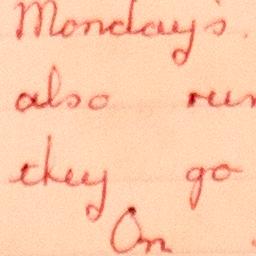 Monday's.
also
they go
On